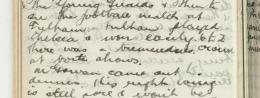 The Young Guards & I went to
see the football match at
Fulham. Fulham played
Chelsea & won easily 6.2
There was a tremendous crowd
at both shows.
McGowan came out to
dinner this night
is still sore & won't be